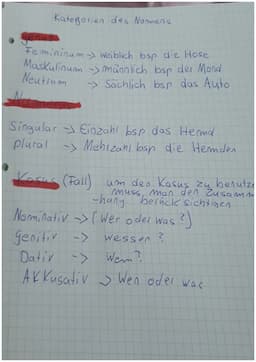 Kategorien des Nomens
Femininum -> weiblich bsp die Hose
Maskulinum -> männlich bsp der Mond
Neutrum -> Sächlich bsp das Auto
Singular -> Einzahl bsp das Hemd
plural -> Mehrzahl bsp die Hemden
Kasus (Fall) um den Kasus zu benutze
muss man den Zusamm
-hang berücksichtigen
Nominativ -> (Wer oder was?)
Genitiv -> wessen?
Dativ -> Wem?
Akkusativ -> Wen oder was